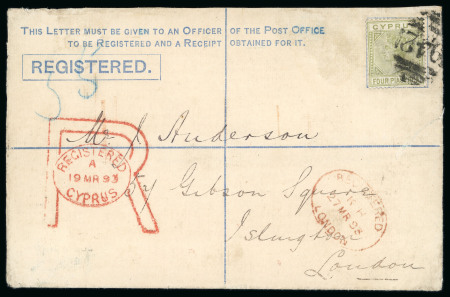 THIS LETTER MUST BE GIVEN TO AN OFFICER OF THE POST OFFICE
TO BE REGISTERED AND A RECEIPT OBTAINED FOR IT.
REGISTERED.
CYPRUS
FOUR
942
Mr J Anderson
REGISTERED
A
19 MR 93
CYPRUS
57 Gibson Square
REGISTERED
27 MR 93
LONDON
Islington
London